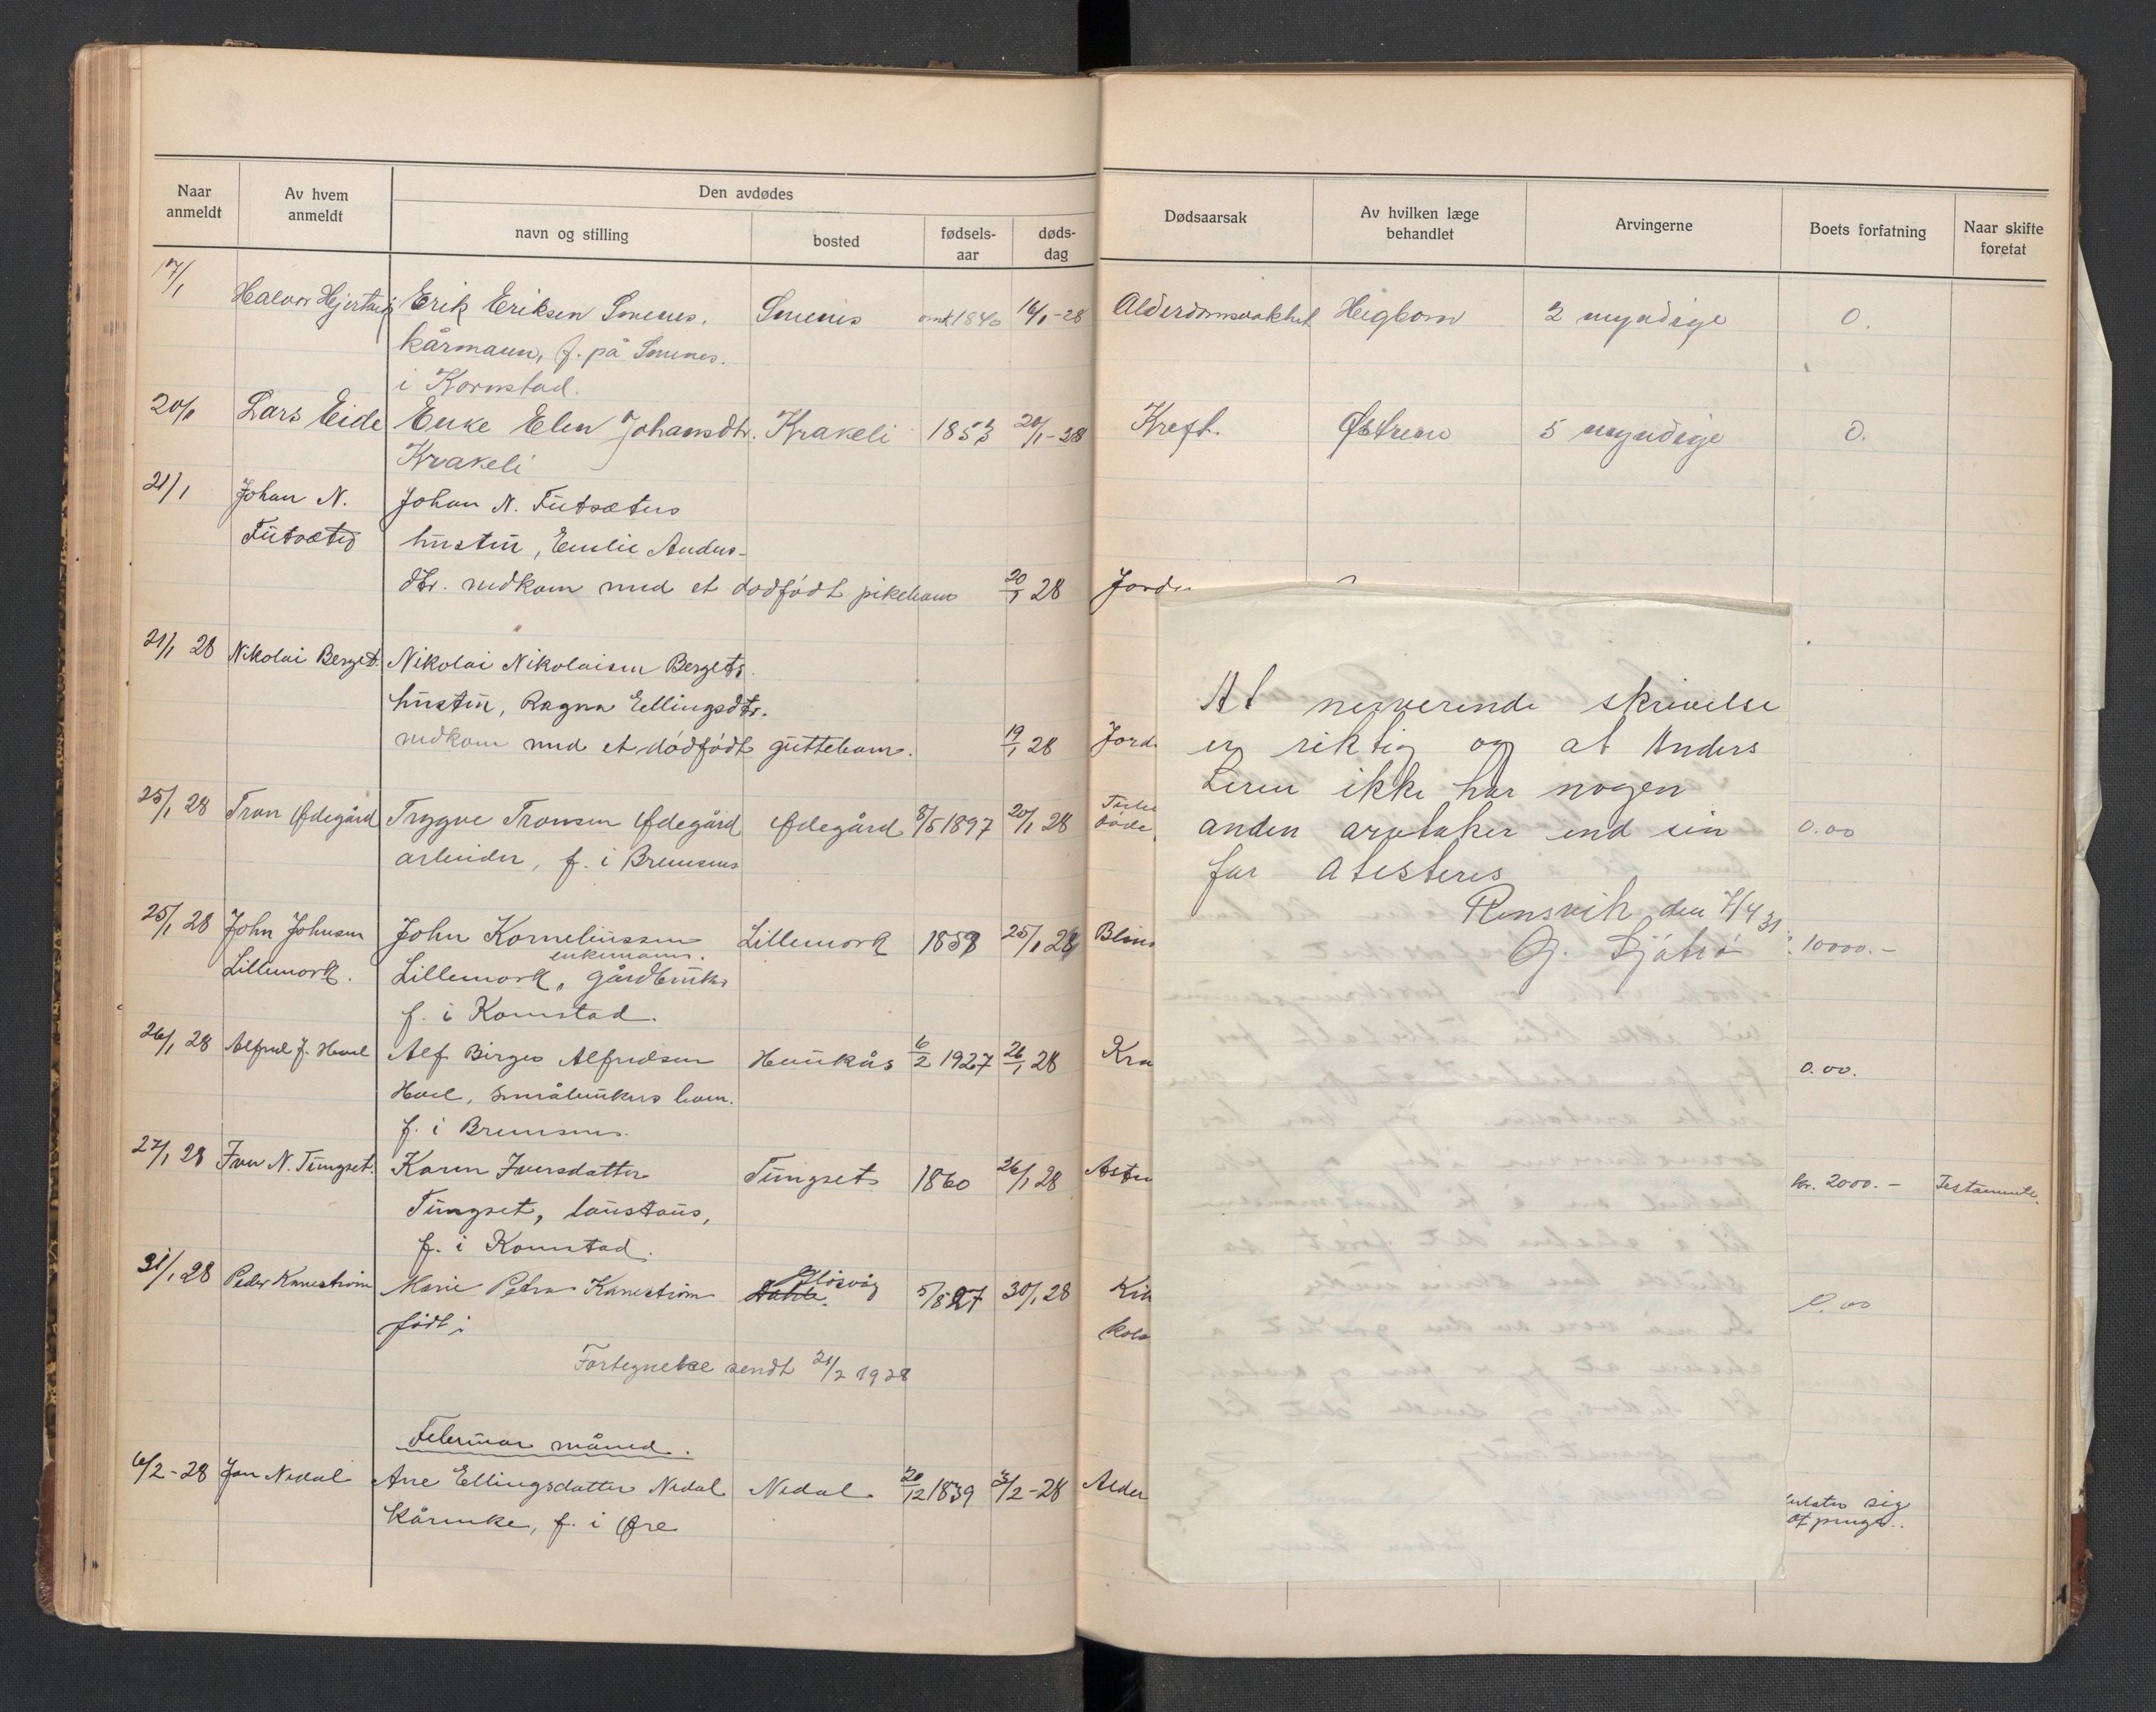 Naar anmeldt | Av hvem anmeldt | Den avdødes
navn og stilling | bosted | fødsels-aar | døds-dag
17/1 | Halvor Hjertvig | Erik Eriksen Smenes. | Smenes | omk 1840 | 16/1-28
kårmann, f. på Smenes.
i Kornstad.
20/1 | Lars Eide | Enke Elen Johansdtr. | Krakeli | 1853 | 20/1-28
Krakeli
21/1 | Johan N. | Johan N. Futsæters
Futsæter | hustru, Emilie Anders-
dtr. nedkom med et dødfødt pikebarn | 20/1 28
21/1 28 | Nikolai Berget. | Nikolai Nikolaisen Bergets
hustru, Ragna Ellingsdtr.
nedkom med et dødfødt guttebarn. | 19/1 28
25/1 28 | Tron Ødegård | Trygve Tronsen Ødegård | Ødegård | 8/5 1897 | 20/1 28
arbeider, f. i Bremsnes
25/1 28 | John Johnsen | John Korneliussen | Lillemork | 1858 | 25/1 28
enkemann.
Lillemork. | Lillemork, gårdbruker
f. i Kornstad.
26/1 28 | Alfred J. Hoel | Alf Birger Alfredsen | Haukås | 6/2 1927 | 26/1 28
Hoel, småbrukers barn.
f. i Bremsnes.
27/1 28 | Iver N. Tungset. | Karen Iversdatter | Tungset | 1860 | 26/1 28
Tungset, taustaus,
f. i Kornstad.
31/1 28 | Peder Kanestrøm | Marie Petra Kanestrøm | 5/8 27 | 30/1 28
født i
Fortegnelse sendt 21/2 1928
Februar måned.
6/2-28 | Jon Nedal | Ane Ellingsdatter Nedal | Nedal | 20/12 1839 | 3/2-28
kårenke, f. i Øre
Dødsaarsak | Av hvilken læge behandlet | Arvingerne | Boets forfatning | Naar skifte foretat
Alderdomsvakhet | Høgbom | 2 myndige | 0.
Kreft. | Østrem | 5 myndige | 0.
Jord
Jord
døde | 0.00
Blind | 10000.-
Kra | 0.00.
Astm | kr. 2000.- | Testamente.
0.00
Alder | sig
At nerverende skrivelse
er riktig og at Anders
Leren ikke har nogen
anden arvtaker end sin
far atesteres
Rensvik den 7/4 31